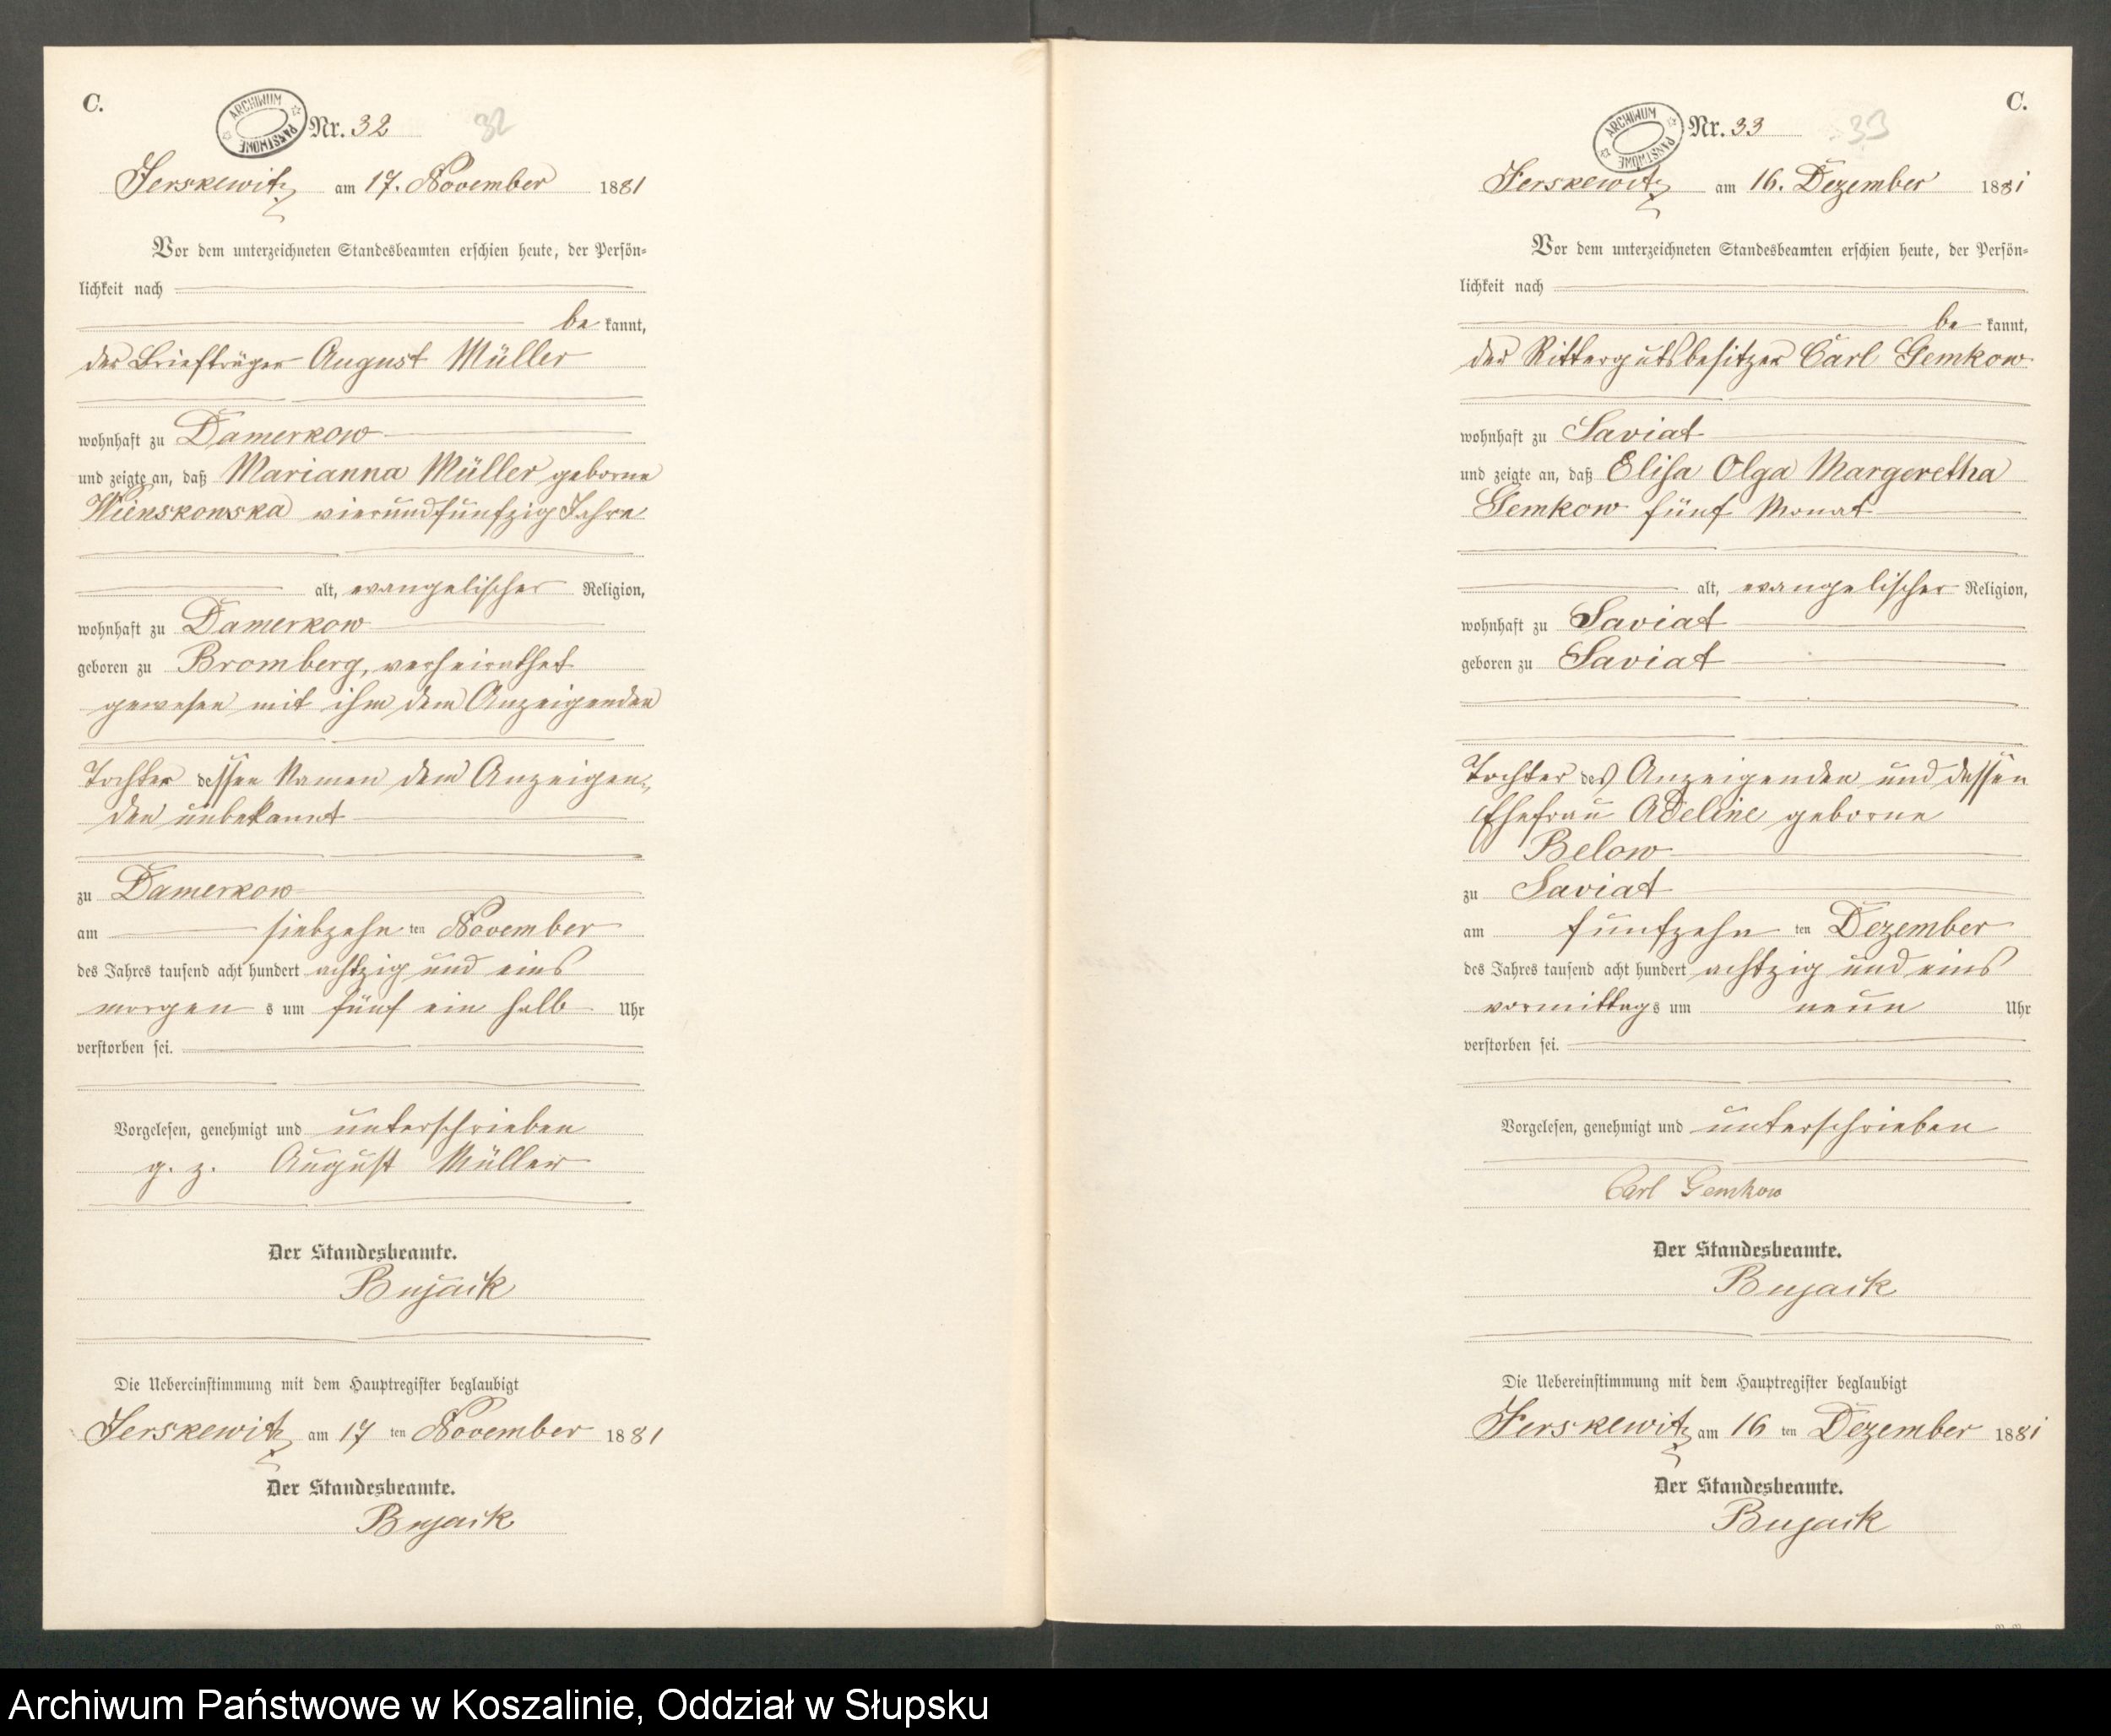 C.
ARCHIWUM PAŃSTWOWE
Nr. 32
32
Jerskewitz am 17. November 1881
Vor dem unterzeichneten Standesbeamten erschien heute, der Persön-
lichkeit nach
be kannt,
der Briefträger August Müller
wohnhaft zu Damerkow
und zeigte an, daß Marianna Müller geborne
vierundfunfzig Jahre
alt, evangelischer Religion,
wohnhaft zu Damerkow
geboren zu Bromberg, verheirathet
gewesen mit ihm dem Anzeigenden
Tochter dessen Namen dem Anzeigen-
den unbekannt
zu Damerkow
am siebzehn ten November
des Jahres tausend acht hundert achtzig und eins
morgen s um fünf ein halb Uhr
verstorben sei.
Vorgelesen, genehmigt und unterschrieben
g. z. August Müller
Der Standesbeamte.
Bujack
Die Uebereinstimmung mit dem Hauptregister beglaubigt
Jerskewitz am 17 ten November 1881
Der Standesbeamte.
Bujack
C.
ARCHIWUM PAŃSTWOWE
Nr. 33
33
Jerskewitz am 16. Dezember 1881
Vor dem unterzeichneten Standesbeamten erschien heute, der Persön-
lichkeit nach
be kannt,
der Rittergutsbesitzer Carl Gemkow
wohnhaft zu Saviat
und zeigte an, daß Elisa Olga Margeretha
Gemkow fünf Monat
alt, evangelischer Religion,
wohnhaft zu Saviat
geboren zu Saviat
Tochter des Anzeigenden und dessen
Ehefrau Adeline geborne
Below
zu Saviat
am funfzehn ten Dezember
des Jahres tausend acht hundert achtzig und eins
vormittag s um neun Uhr
verstorben sei.
Vorgelesen, genehmigt und unterschrieben
Carl Gemkow
Der Standesbeamte.
Bujack
Die Uebereinstimmung mit dem Hauptregister beglaubigt
Jerskewitz am 16 ten Dezember 1881
Der Standesbeamte.
Bujack
Archiwum Państwowe w Koszalinie, Oddział w Słupsku